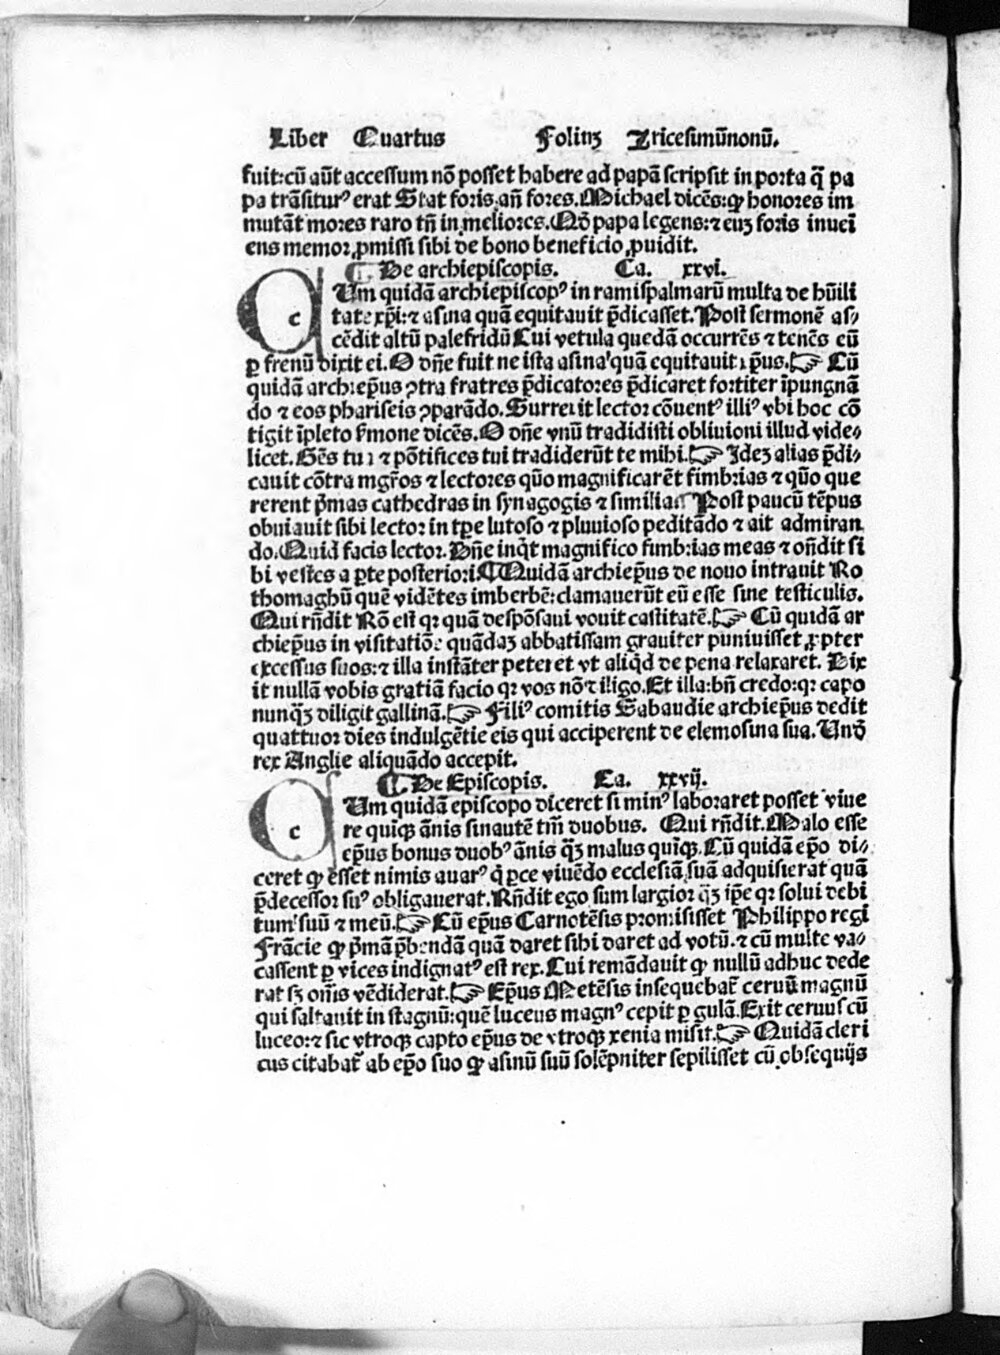 Liber Quartus Foliuʒ Tricesimūnonū.
fuit:cū aūt accessum nō posset habere ad papā scripsit in porta q̄ pa
pa trāsiturꝰ erat Stat foris.an̄ fores.Michael dicēs:ꝙ honores im
mutāt mores raro tn̄ in meliores.Qḋ papa legens:⁊ euʒ foris inuei
ens memor ꝓmissi sibi de bono beneficio ꝓuidit.
¶ De archiepiscopis. Ca. xxvi.
c Um quidā archiepiscopꝰ in ramispalmarū multa de hūili
tate xp̄i:⁊ asina quā equitauit p̄dicasset.Post sermonē as⸗
cēdit altū palefridū Cui vetula quedā occurrēs ⁊ tenēs eū
ꝑ frenū dixit ei.O dn̄e fuit ne ista asina quā equitauit xp̄us.☞ Cū
quidā archiep̄us ↄtra fratres p̄dicatores p̄dicaret fortiter īpungnā
do ⁊ eos phariseis ↄparādo.Surrexit lector cōuentꝰ illiꝰ vbi hoc cō
tigit īpleto s̄mone dicēs.O dn̄e vnū tradidisti obliuioni illud vide⸗
licet.Gēs tua ⁊ pōtifices tui tradiderūt te mihi.☞ Jdeʒ alias p̄di⸗
cauit cōtra mgr̄os ⁊ lectores quō magnificarēt fimbrias ⁊ quō que
rerent p̄mas cathedras in synagogis ⁊ similia¶ Post paucū tēpus
obuiauit sibi lector in tp̄e lutoso ⁊ pluuioso peditādo ⁊ ait admiran
do.Quid facis lector.Dn̄e inq̇t magnifico fimbrias meas ⁊ on̄dit si
bi vestes a ꝑte posteriori¶Quidā archiep̄us de nouo intrauit Ro
thomaghū quē vidētes imberbē:clamauerūt eū esse sine testiculis.
Qui rn̄dit Rō est qꝛ quā despōsaui vouit castitatē.☞ Cū quidā ar
chiep̄us in visitatiōe quādaʒ abbatissam grauiter puniuisset ꝓpter
excessus suos:⁊ illa instāter peteret vt aliq̇d de pena relaxaret. Dix
it nullā vobis gratiā facio qꝛ vos nō diligo.Et illa:bn̄ credo:qꝛ capo
nunq̄ʒ diligit gallinā.☞ Filiꝰ comitis Sabaudie archiep̄us dedit
quattuor dies indulgētie eis qui acciperent de elemosina sua.Unḋ
rex Anglie aliquādo accepit.
¶ De Episcopis. Ca. xxvij.
c Um quidā episcopo diceret si minꝰ laboraret posset viue
re quiqꝫ ānis sinautē tm̄ duobus. Qui rn̄dit.Malo esse
ep̄us bonus duobꝰ ānis q̄ʒ malus quīqꝫ.Cū quidā ep̄o di⸗
ceret ꝙ esset nimis auarꝰ q̇ ꝑce viuēdo ecclesiā suā adquisierat quā
p̄decessor suꝰ obligauerat.Rn̄dit ego sum largior q̄ʒ ip̄e qꝛ solui debi
tum suū ⁊ meū.☞ Cū ep̄us Carnotēsis promisisset Philippo regi
Frācie ꝙ p̄mā p̄bendā quā daret sibi daret ad votū.⁊ cū multe va⸗
cassent ꝑ vices indignatꝰ est rex.Cui remādauit ꝙ nullū adhuc dede
rat sʒ om̄s vēdiderat.☞ Ep̄us Metēsis insequebat̄ ceruū magnū
qui saltauit in stagnū:quē luceus magnꝰ cepit ꝑ gulā.Exit ceruus cū
luceo:⁊ sic vtroqꝫ capto ep̄us de vtroqꝫ xenia misit.☞ Quidā cleri
cus citabat̄ ab ep̄o suo ꝙ asinū suū solēpniter sepilisset cū obsequijs